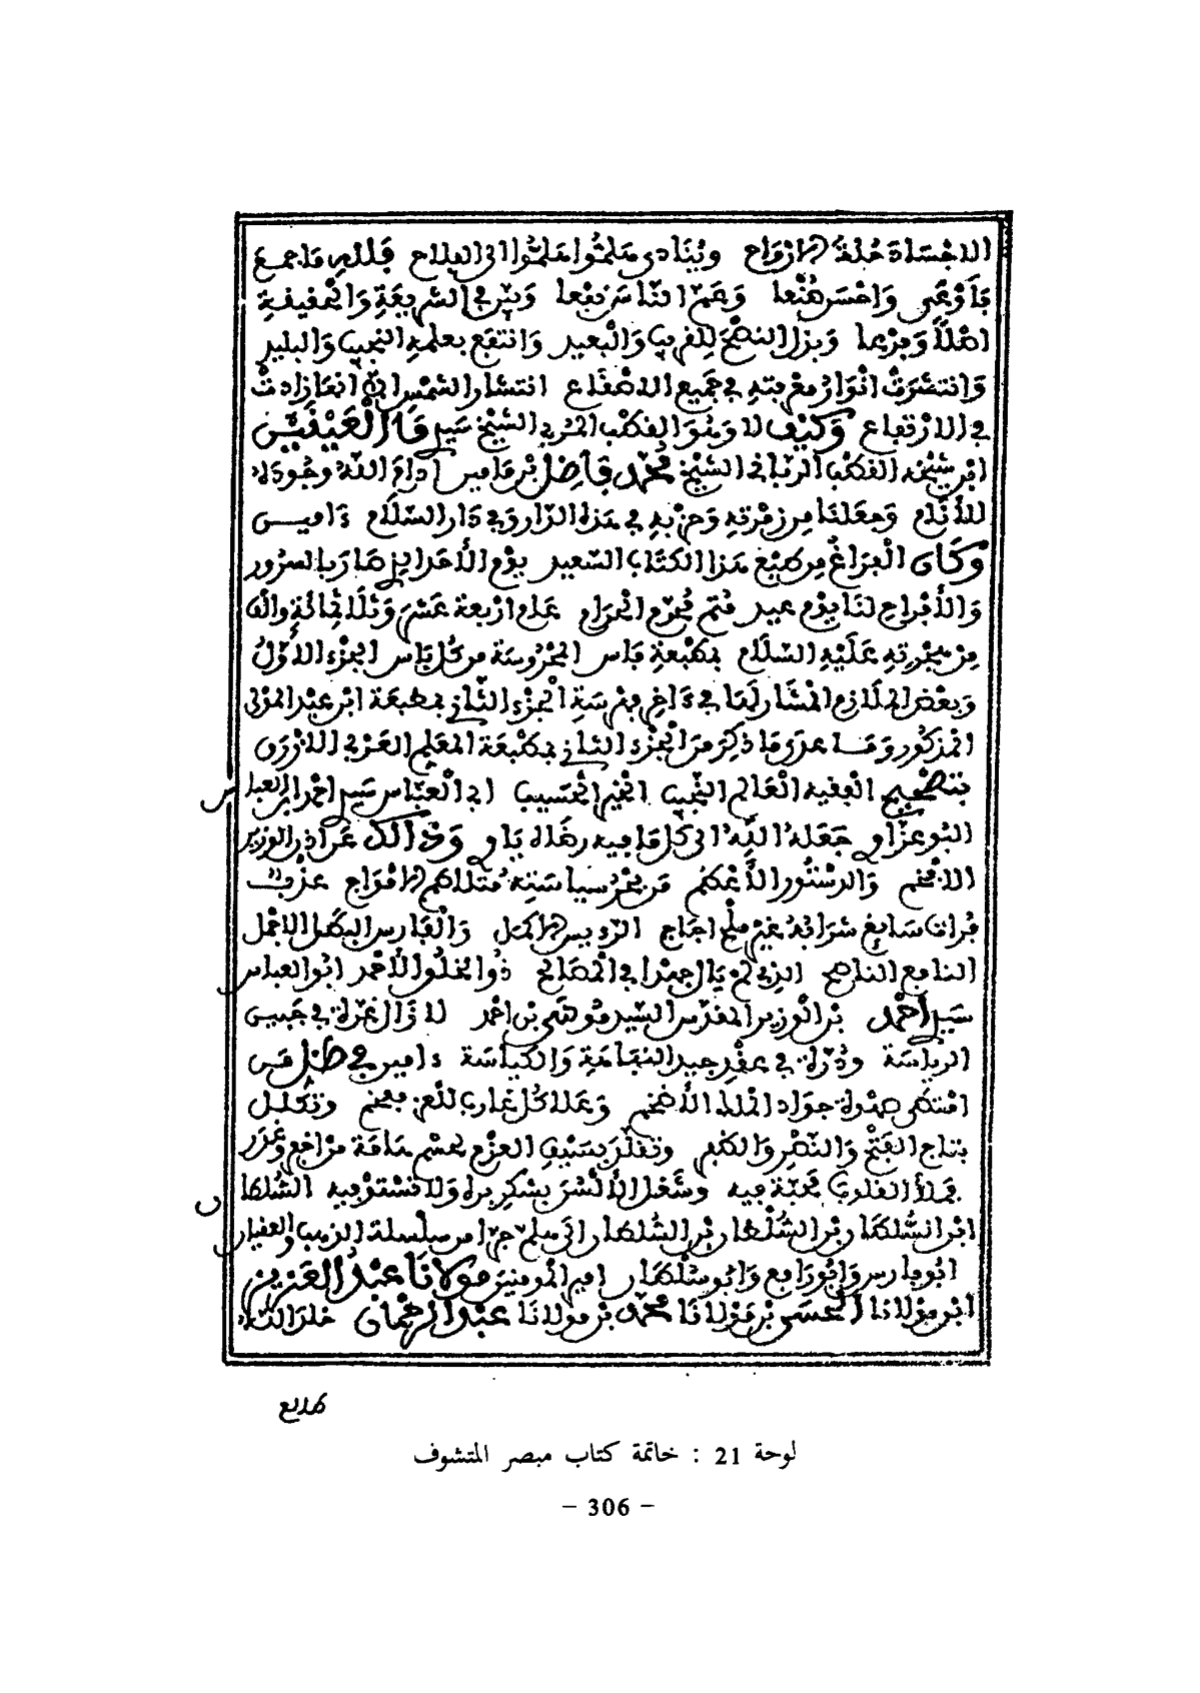 الاجساد حلة الارواح وينادى هلموا هلموا الى الفلاح فلله ما جمع
فأوعى واحسن صنعا وعم الناس نفعا وبين في الشريعة والحقيقة
اصلا وفرعا وبذل النصح للقريب والبعيد وانتفع بعلمه النجيب والبليد
وانتشرت انوار معرفته في جميع الاصقاع انتشار الشمس ابان انها زادت
في الارتفاع وكيف لا وهو القطب المربي الشيخ سيدي ماء العينين
ابن شيخه القطب الرباني الشيخ محمد فاضل بن مامين ادام الله وجوده
للأنام وجعلنا من زمرته وحزبه في هذه الدار وفي دار السلام ءامين
وكان الفراغ من طبع هذا الكتاب السعيد يوم الأحد الذي صار بالسرور
والأفراح لنا يوم عيد فتم محرم الحرام عام اربعة عشر وثلاثمائة والف
من هجرته عليه السلام بمطبعة فاس المحروسة من كل باس الجزء الأول
وبعض الملازم المشار لها في داخل فهرسة الجزء الثاني بمطبعة ابن عبد المولى
المذكور وما عدى ما ذكر من الجزء الثاني بمطبعة المعلم العربي الازرق
بتصحيح الفقيه العالم النجيب الخير الحسيب ابي العباس سيدي احمد ابن العباس
البوعزاوي جعله الله الى كل ما فيه رضاه ياوي وذالك عن اذن الوزير
الافخم والدستور الأعظم من بحر سياسته متلاطم الامواج عذب
فرات سايغ شرابه غير ملح اجاج الرءيس الاكمل والفارس البطل الاجمل
النافع الناصح الذي لم يال جهدا في المصالح ذو الخلق الأحمد ابو العباس
سيدي أحمد بن الوزير المقدس السيد موسى بن احمد لا زال غرة في جبين
الرياسة ودرة في عقد جيد النباهة والكياسة ءامين في ظل من
امتطى صهوة جواد الملك الأضخم وعلا كل غارب للعز مفخم وتكلل
بتاج الفتح والنصر والظفر وتقلد بسيف العزم بحسم هامة من فجر وغدر
فملأ القلوب محبة فيه وشغل الألسن بشكر بره ولا تستوفيه السلطان
ابن السلطان بن السلطان بن السلطان الى هلم جرا من سلسلة الذهب والعقيان
ابو فارس وابو رافع وابو سلطان امير المومنين مولانا عبد العزيز
ابن مولانا الحسن بن مولانا محمد بن مولانا عبد الرحمان خلد الله
لوحة 21 : خاتمة كتاب مبصر المتشوف
- 306 -